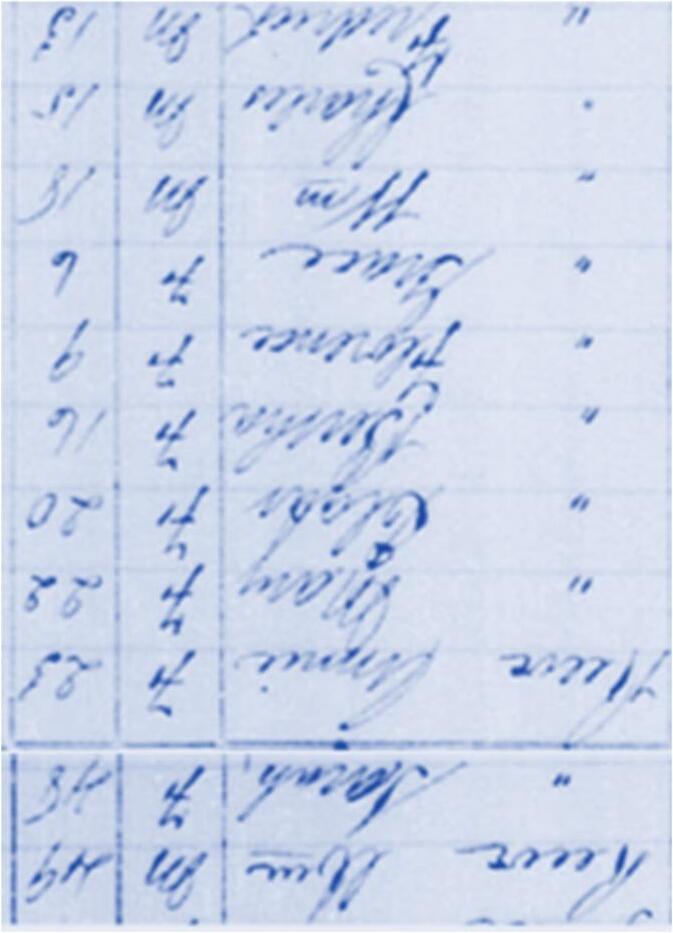 Wm M 49
" Sarah F 48
Annie F 23
" Mary F 22
" Clara F 20
" Bertha F 16
" Florence F 9
" Grace F 6
" Wm M 18
" Charles M 15
" M 13